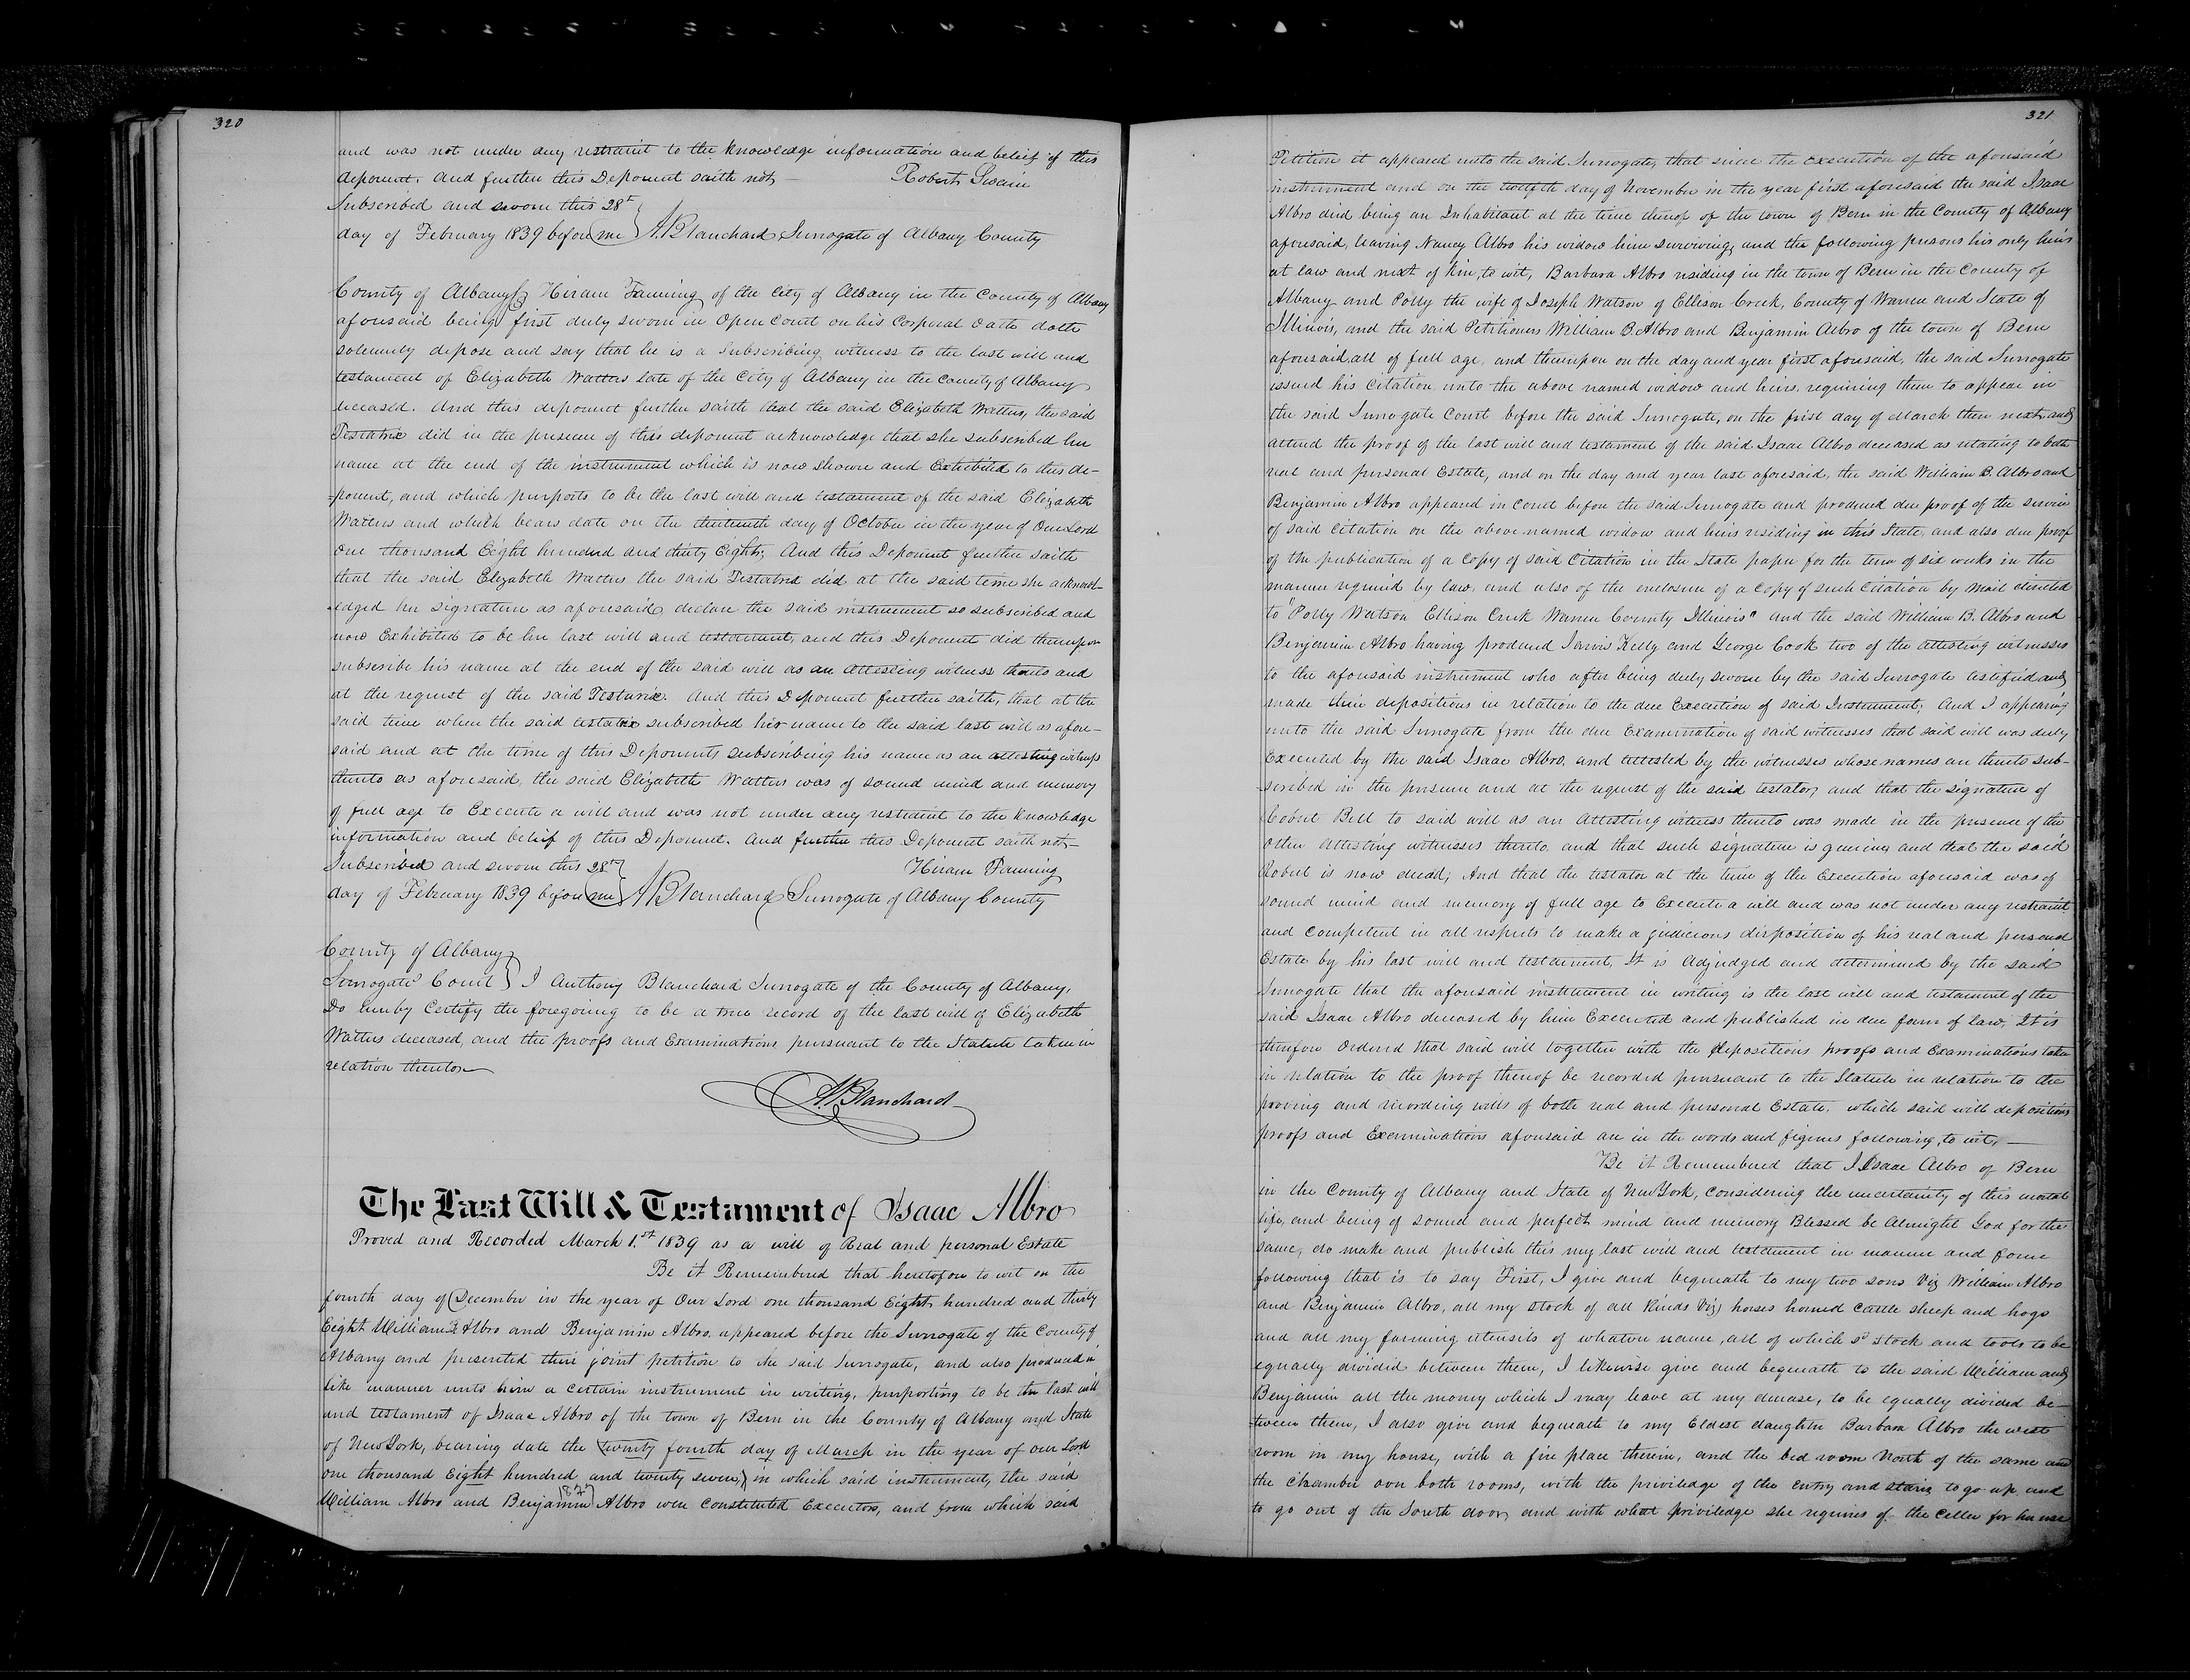 320
and was not under any restraint to the knowledge information and belief of this
deponent. And further this Deponent saith not — Robert Swain
Subscribed and sworn this 28th
day of February 1839 before me } A. Blanchard Surrogate of Albany County
County of Albany ss Hiram Fanning of the City of Albany in the County of Albany
aforesaid being first duly sworn in Open Court on his Corporal Oath doth
solemnly depose and say that he is a Subscribing witness to the last will and
testament of Elizabeth Watters late of the City of Albany in the County of Albany
deceased. And this deponent further saith that the said Elizabeth Watters, the said
Testatrix did in the presence of this deponent acknowledge that she subscribed her
name at the end of the instrument which is now shown and Exhibited to this de-
-ponent, and which purports to be the last will and testament of the said Elizabeth
Watters and which bears date on the thirteenth day of October in the year of Our Lord
One thousand Eight hundred and thirty Eight; And this Deponent further saith
that the said Elizabeth Watters the said Testatrix did at the said time she acknowl-
-edged her signature as aforesaid, declare the said instrument so subscribed and
now Exhibited to be her last will and testament, and this Deponent did thereupon
subscribe his name at the end of the said will as an attesting witness thereto and
at the request of the said Testatrix. And this Deponent further saith, that at the
said time when the said testatrix subscribed her name to the said last will as afore-
said and at the time of this Deponents subscribing his name as an attesting witness
thereto as aforesaid, the said Elizabeth Watters was of sound mind and memory
of full age to Execute a will and was not under any restraint to the knowledge
information and belief of this Deponent. And further this Deponent saith not —
Subscribed and sworn this 28th } Hiram Fanning
day of February 1839 before me } A Blanchard Surrogate of Albany County
County of Albany
Surrogates Court } I Anthony Blanchard Surrogate of the County of Albany,
Do hereby Certify the foregoing to be a true record of the last will of Elizabeth
Watters deceased, and the proofs and Examinations pursuant to the Statute taken in
relation thereto —
A. Blanchard
The Last Will & Testament of Isaac Albro
Proved and Recorded March 1.st 1839 as a will of Real and personal Estate
Be it Remembered that heretofore to wit on the
fourth day of December in the year of Our Lord one thousand Eight hundred and thirty
Eight William B Albro and Benjamin Albro, appeared before the Surrogate of the County of
Albany and presented their joint petition to the said Surrogate, and also produced in
like manner unto him a certain instrument in writing, purporting to be the last will
and testament of Isaac Albro of the town of Bern in the County of Albany and State
of New York, bearing date the twenty fourth day of March in the year of our Lord
one thousand Eight hundred and twenty seven, in which said instrument, the said
1827
William Albro and Benjamin Albro were Constituted Executors, and from which said
321
Petition it appeared unto the said Surrogate, that since the execution of the aforesaid
instrument and on the twelfth day of November in the year first aforesaid the said Isaac
Albro died being an Inhabitant at the time thereof of the town of Bern in the County of Albany
aforesaid, leaving Nancy Albro his widow him surviving, and the following persons his only heirs
at law and next of kin, to wit, Barbara Albro residing in the town of Bern in the County of
Albany and Polly the wife of Joseph Watson of Ellison Creek, County of Warren and State of
Illinois, and the said Petitioners William B. Albro and Benjamin Albro of the town of Bern
aforesaid, all of full age, and thereupon on the day and year first aforesaid, the said Surrogate
issued his Citation unto the above named widow and heirs, requiring them to appear in
the said Surrogate Court before the said Surrogate, on the first day of March then next and
attend the proof of the last will and testament of the said Isaac Albro deceased as relating to both
real and personal Estate, and on the day and year last aforesaid, the said William B. Albro and
Benjamin Albro appeared in Court before the said Surrogate and produced due proof of the service
of said Citation on the above named widow and heirs residing in this State, and also due proof
of the publication of a Copy of said Citation in the State paper for the term of six weeks in the
manner required by law, and also of the enclosure of a Copy of such Citation by mail directed
to "Polly Watson Ellison Creek Warren County Illinois" and the said William B. Albro and
Benjamin Albro having produced Jarvis Kelly and George Cook two of the attesting witnesses
to the aforesaid instrument who after being duly sworn by the said Surrogate testified and
made their depositions in relation to the due Execution of said Instrument; And I appearing
unto the said Surrogate from the due Examination of said witnesses that said will was duly
Executed by the said Isaac Albro, and attested by the witnesses whose names are thereto sub-
-scribed in the presence and at the request of the said testator, and that the signature of
Robert Bell to said will as an Attesting witness thereto was made in the presence of the
other attesting witnesses thereto, and that such signature is genuine, and that the said
Robert is now dead; And that the testator at the time of the Execution aforesaid was of
sound mind and memory of full age to Execute a will and was not under any restraint
and Competent in all respects to make a judicious disposition of his real and personal
Estate by his last will and testament, It is Adjudged and determined by the said
Surrogate that the aforesaid instrument in writing is the last will and testament of the
said Isaac Albro deceased by him Executed and published in due form of law, It is
therefore Ordered that said will together with the depositions proofs and Examinations taken
in relation to the proof thereof be recorded pursuant to the Statute in relation to the
proving and recording wills of both real and personal Estate, which said will depositions
proofs and Examinations aforesaid are in the words and figures following, to wit, —
Be it Remembered that I Isaac Albro of Bern
in the County of Albany and State of New York, Considering the uncertainty of this mortal
life, and being of sound and perfect mind and memory Blessed be Almightd God for the
same, do make and publish this my last will and testament in manner and form
following that is to say First, I give and bequeath to my two sons Viz William Albro
and Benjamin Albro, all my stock of all Kinds Viz, horses horned Cattle sheep and hogs
and all my farming utensils of whatever name, all of which sd stock and tools to be
equally divided between them, I likewise give and bequeath to the said William and
Benjamin all the money which I may leave at my decease, to be equally divided be-
tween them, I also give and bequeath to my Eldest daughter Barbara Albro the west
room in my house, with a fire place therein, and the bed room North of the same and
the Chamber over both rooms, with the priviledge of the Entry and stairs to go up and
to go out of the South door, and with what priviledge she requires of the Celler for her use